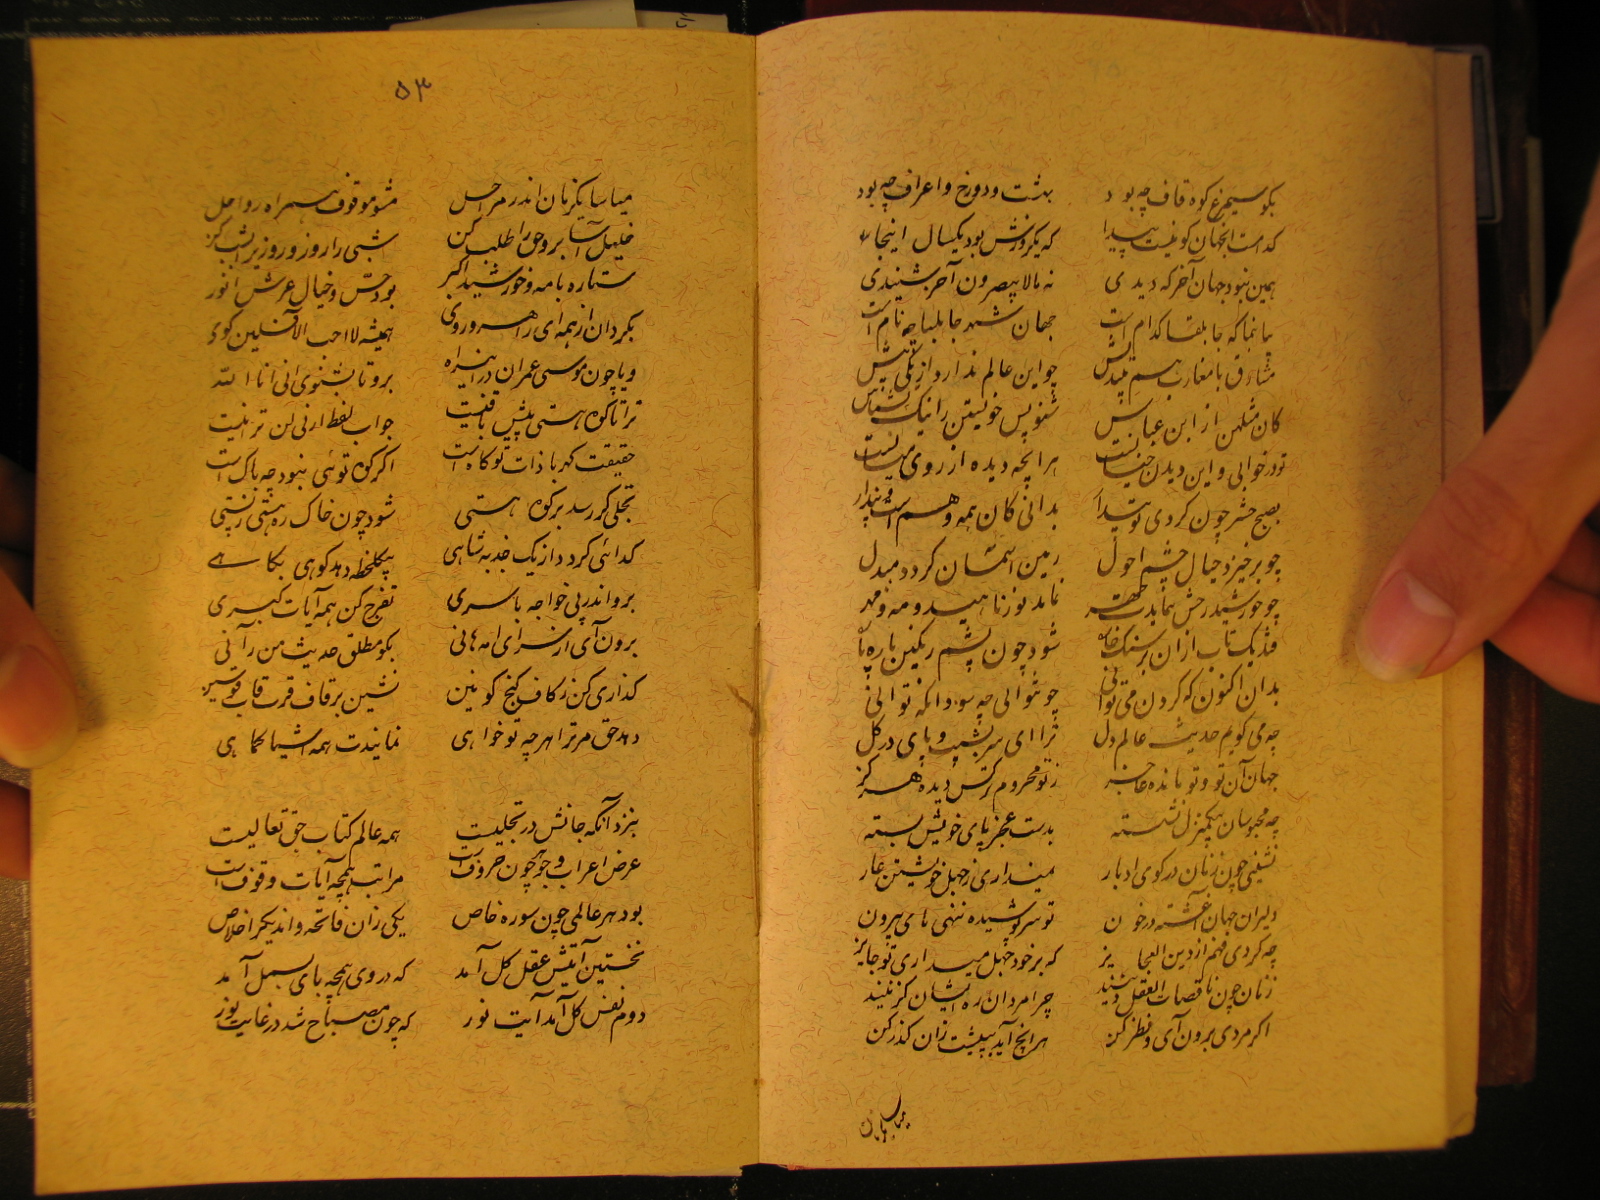 بکو سیمرغ و کوه قاف چه بود بهشت و دوزخ و اعراف چه بود
کدامست آنجهان کو نیست پیدا که یکروزش بود یکسال اینجا
همین نبود جهان آخر که دیدی نه مالا تبصرون آخر شنیدی
بیا بنما که جابلقا کدام است جهان شهر جابلسا چه نام است
مشارق با مغارب هم بیندیش چو این عالم ندارد از یکی بیش
بیان مثلهن از ابن عباس شنو پس خویشتن را نیک بشناس
تو در خوابی و این دیدن خیالست هر آنچه دیده از وی مثالست
بصبح حشر چون کردی تو بیدار بدانی کان همه وهم است و پندار
چو برخیزد خیال چشم احول زمین آسمان کردد مبدل
چو خورشید رخش بنمایدت چهر نماند نور ناهید و مه و مهر
فتد یک تاب ازان بر سنک خاره شود چون پشم رنکین پاره پاره
بدان اکنون که کردن می توانی چو نتوانی چه سود آنکه توانی
چه می کویم حدیث عالم دل ترا ای سر بشیب و پای در کل
جهان آن تو و تو مانده عاجز ز تو محروم تر کس دیده هرکز
چه محبوسان بیکمنزل نشسته بدست عجز پای خویش بسته
نشینی چون زنان در کوی ادبار نمیداری ز جهل خویشتن عار
دلیران جهان آغشته در خون تو سرپوشیده ننهی پای بیرون
چه کردی فهم از دین العجایز که بر خود جهل میداری تو جایز
زنان چون ناقصات العقل و دینند چرا مردان ره ایشان کزینند
اکر مردی برون آی و نظر کن هر آنچ آید بپیشت زان کذر کن
میاسا
۵۳
میاسا یکزمان اندر مراحل مشو موقوف همراه رواحل
خلیل آسا برو حق را طلب کن شبی را روز و روزی را بشب کن
ستاره با مه و خورشید اکبر بود حس و خیال و عرش انور
بکردان از همه ای راهرو روی همیشه لا احب الآفلین کوی
و یا چون موسی عمران در این راه برو تا بشنوی انی انا الله
ترا تا کوه هستی پیش باقیست جواب لفظ ارنی لن ترانیست
حقیقت کهربا ذات تو کاه است اکر کوه توئی نبود چه باک است
تجلی کر رسد بر کوه هستی شود چون خاک ره هستی ز پستی
کدائی کردد از یک جذبه شاهی بیکلحظه دهد کوهی بکاهی
برو اندر پی خواجه باسری تفرج کن همه آیات کبری
برون آی از سرای ام هانی بکو مطلق حدیث من رآنی
کذاری کن ز کاف کنج کونین نشین بر قاف قرب قاب قوسین
دهد حق مر ترا هر چه تو خواهی نمایندت همه اشیا کماهی
بنزد آنکه جانش در تجلیست همه عالم کتاب حق تعالیست
عرض اعراب و جوهر چون حروف است مراتب همچه آیات وقوف است
بود هر عالمی چون سوره خاص یکی زان فاتحه و اندیکر اخلاص
نخستین آیتش عقل کل آمد که در وی همچه بای بسمل آمد
دوم نفس کل آمد آیت نور که چون مصباح شد در غایت نور